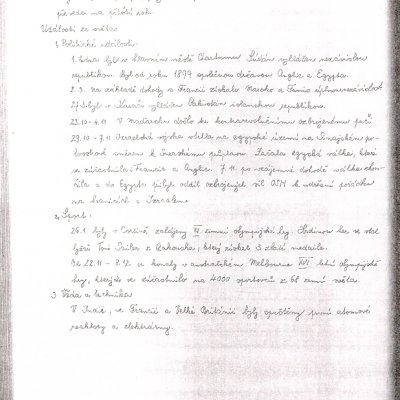 převedu na příští rok.
Události ze světa:
1, Politické události:
1. ledna byl v hlavním městě Chartumu Súdán vyhlášen nezávislou
republikou. Byl od roku 1899 společnou državou Anglie a Egypta.
2.3. Na základě dohody s Francií získalo Maroko a Tunis úplnou nezávislost
23.3 byl v Karáčí vyhlášen Pakistán islamskou republikou.
23.10-4.11 V Maďarsku došlo ke kontrarevolučnímu ozbrojenému puči.
29.10-7.11 Izraelská vojska vtrhla na egyptské území na Sinajském po-
loostrově směrem k Suezskému průplavu. Začala egyptská válka, které
se zúčastnila Francie a Anglie. 7.11 po vzájemné dohodě válka skon-
čila a do Egypta přibyl oddíl ozbrojených sil OSN k udržení pořádku
na hranicích s Izraelem.
2, Sport:
26.1 byly v Cortině zahájeny VII zimní olympijské hry. Hrdinou her se stal
lyžař Toni Sailer z Rakouska, který získal 3 zlaté medaile.
Od 22.11 - 8.12 se konaly v australském Melbourne XVI letní olympijské
hry, kterých se zúčastnilo na 4000 sportovců z 68 zemí světa.
3 Věda a technika
V Indii, ve Francii a Velké Británii byly spuštěny první atomové
reaktory a elektrárny.